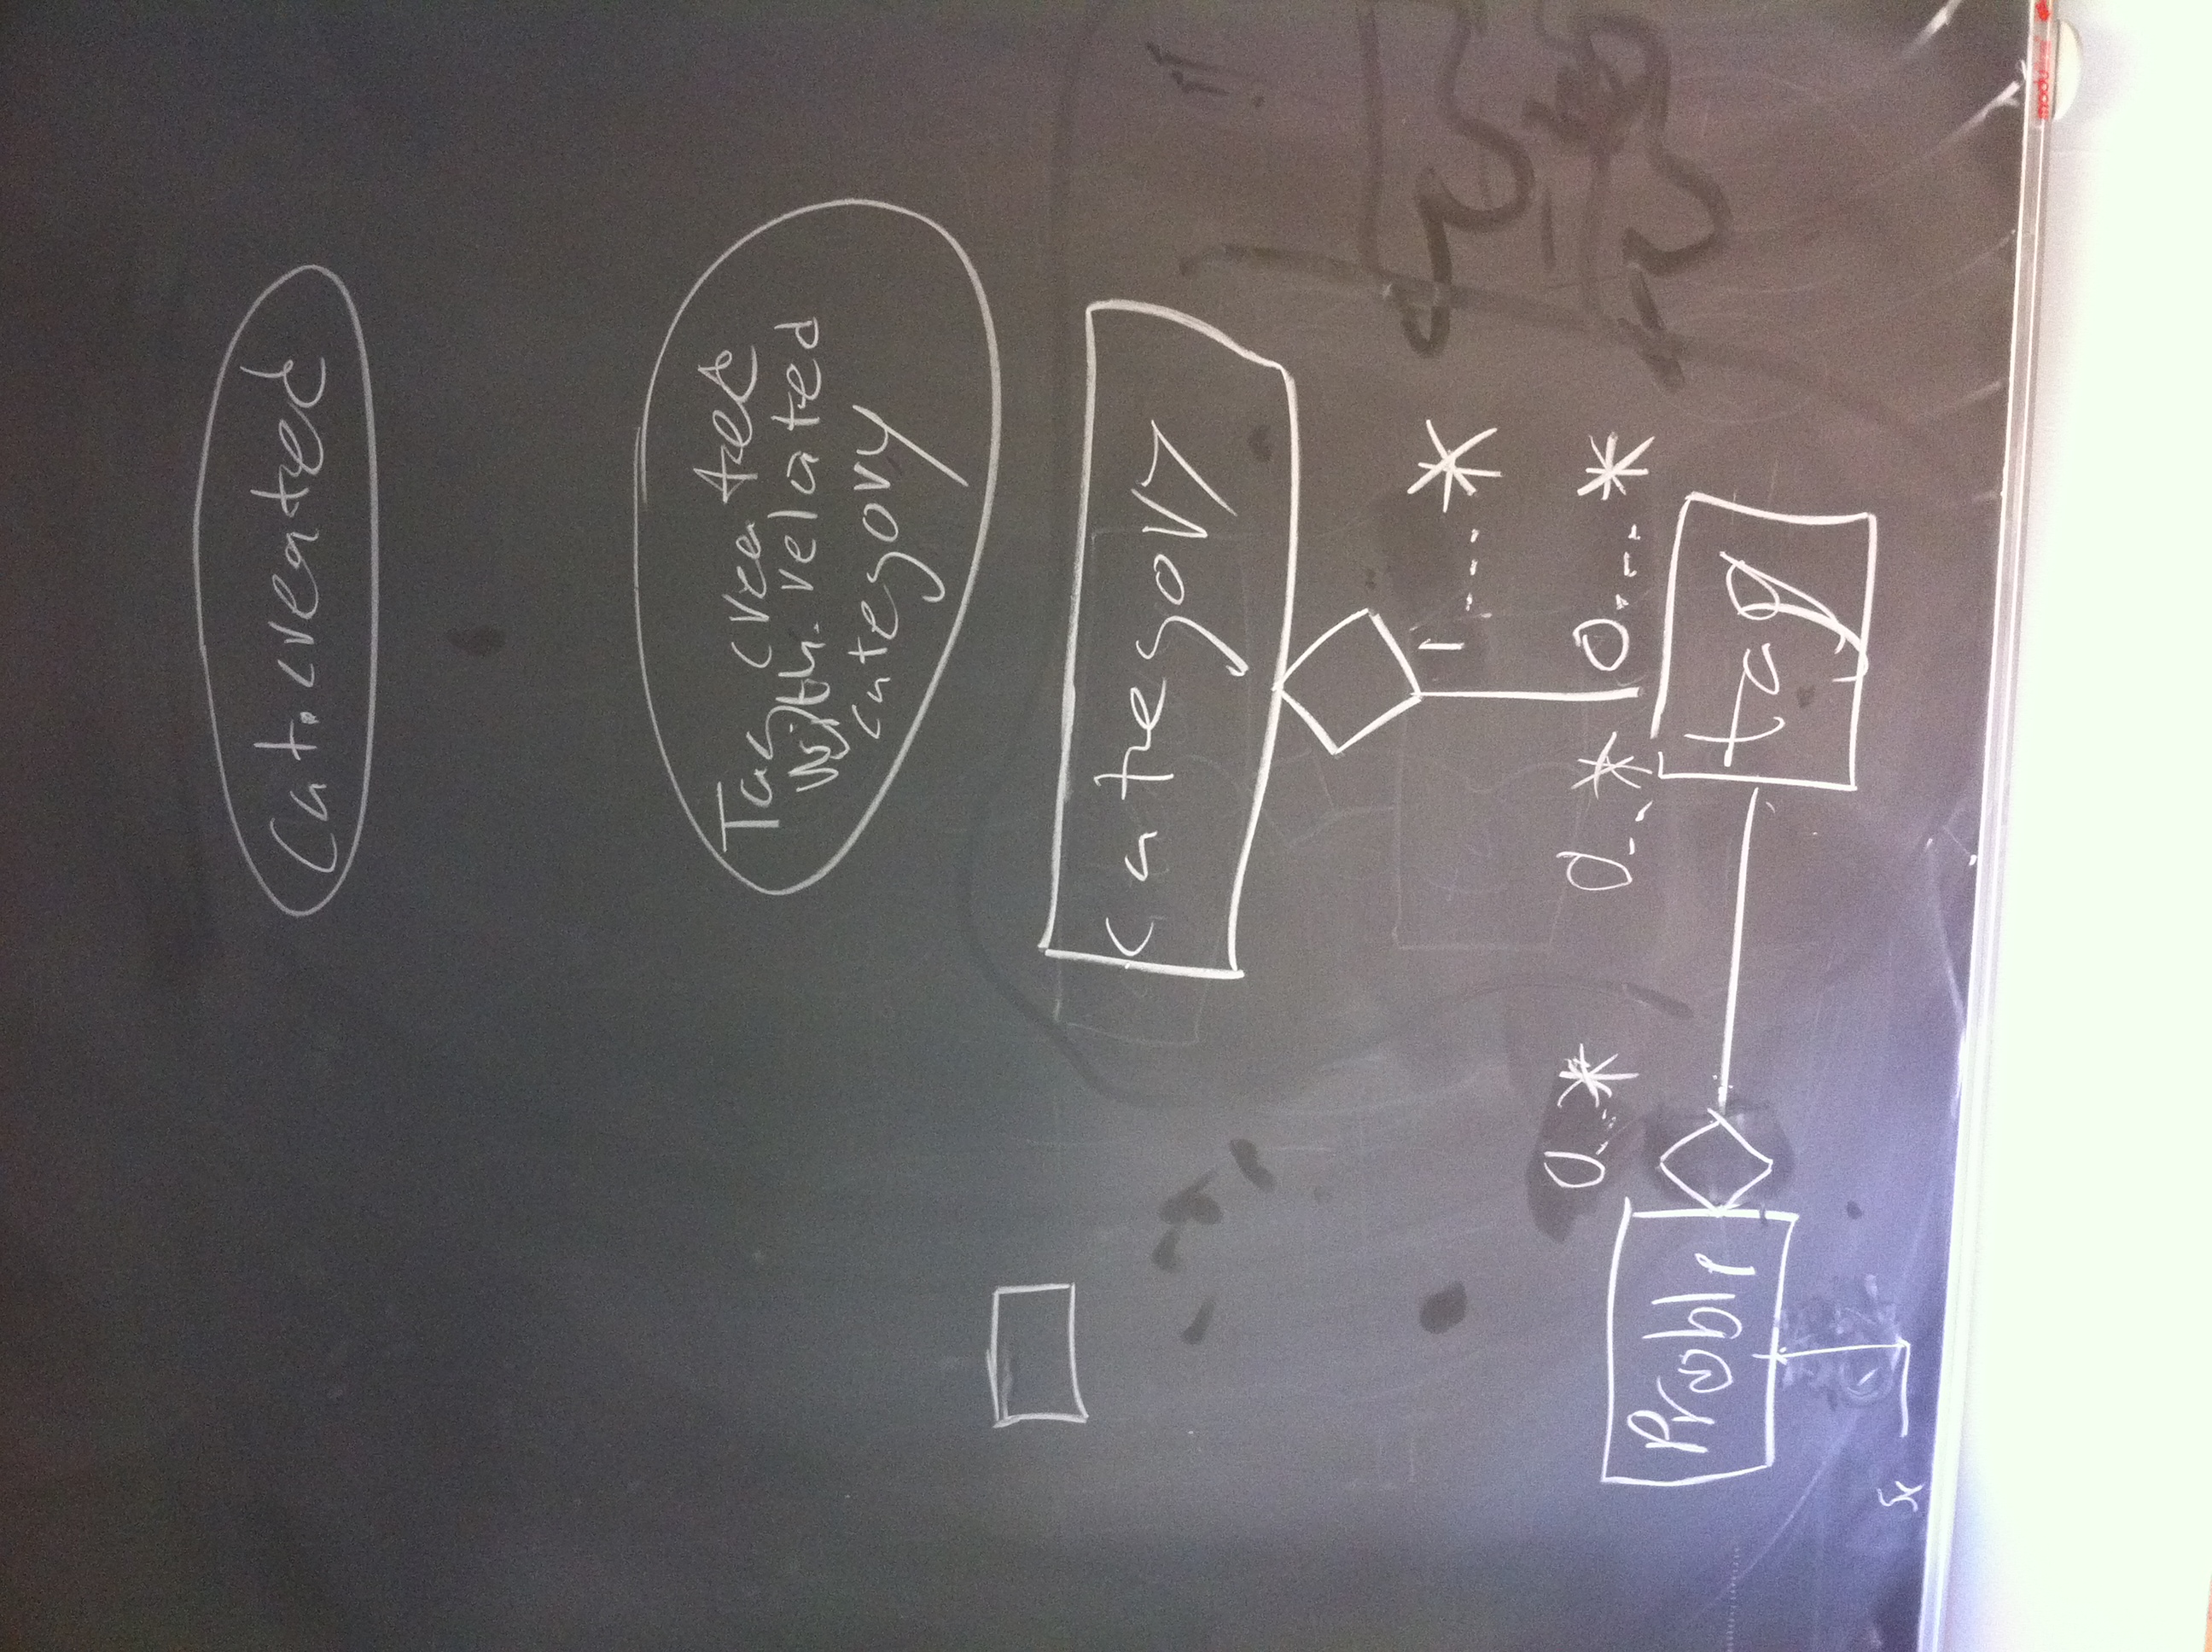 Cat. created
Tag created
with related
category
category
1....*
0...*
0...*
0....*
tag